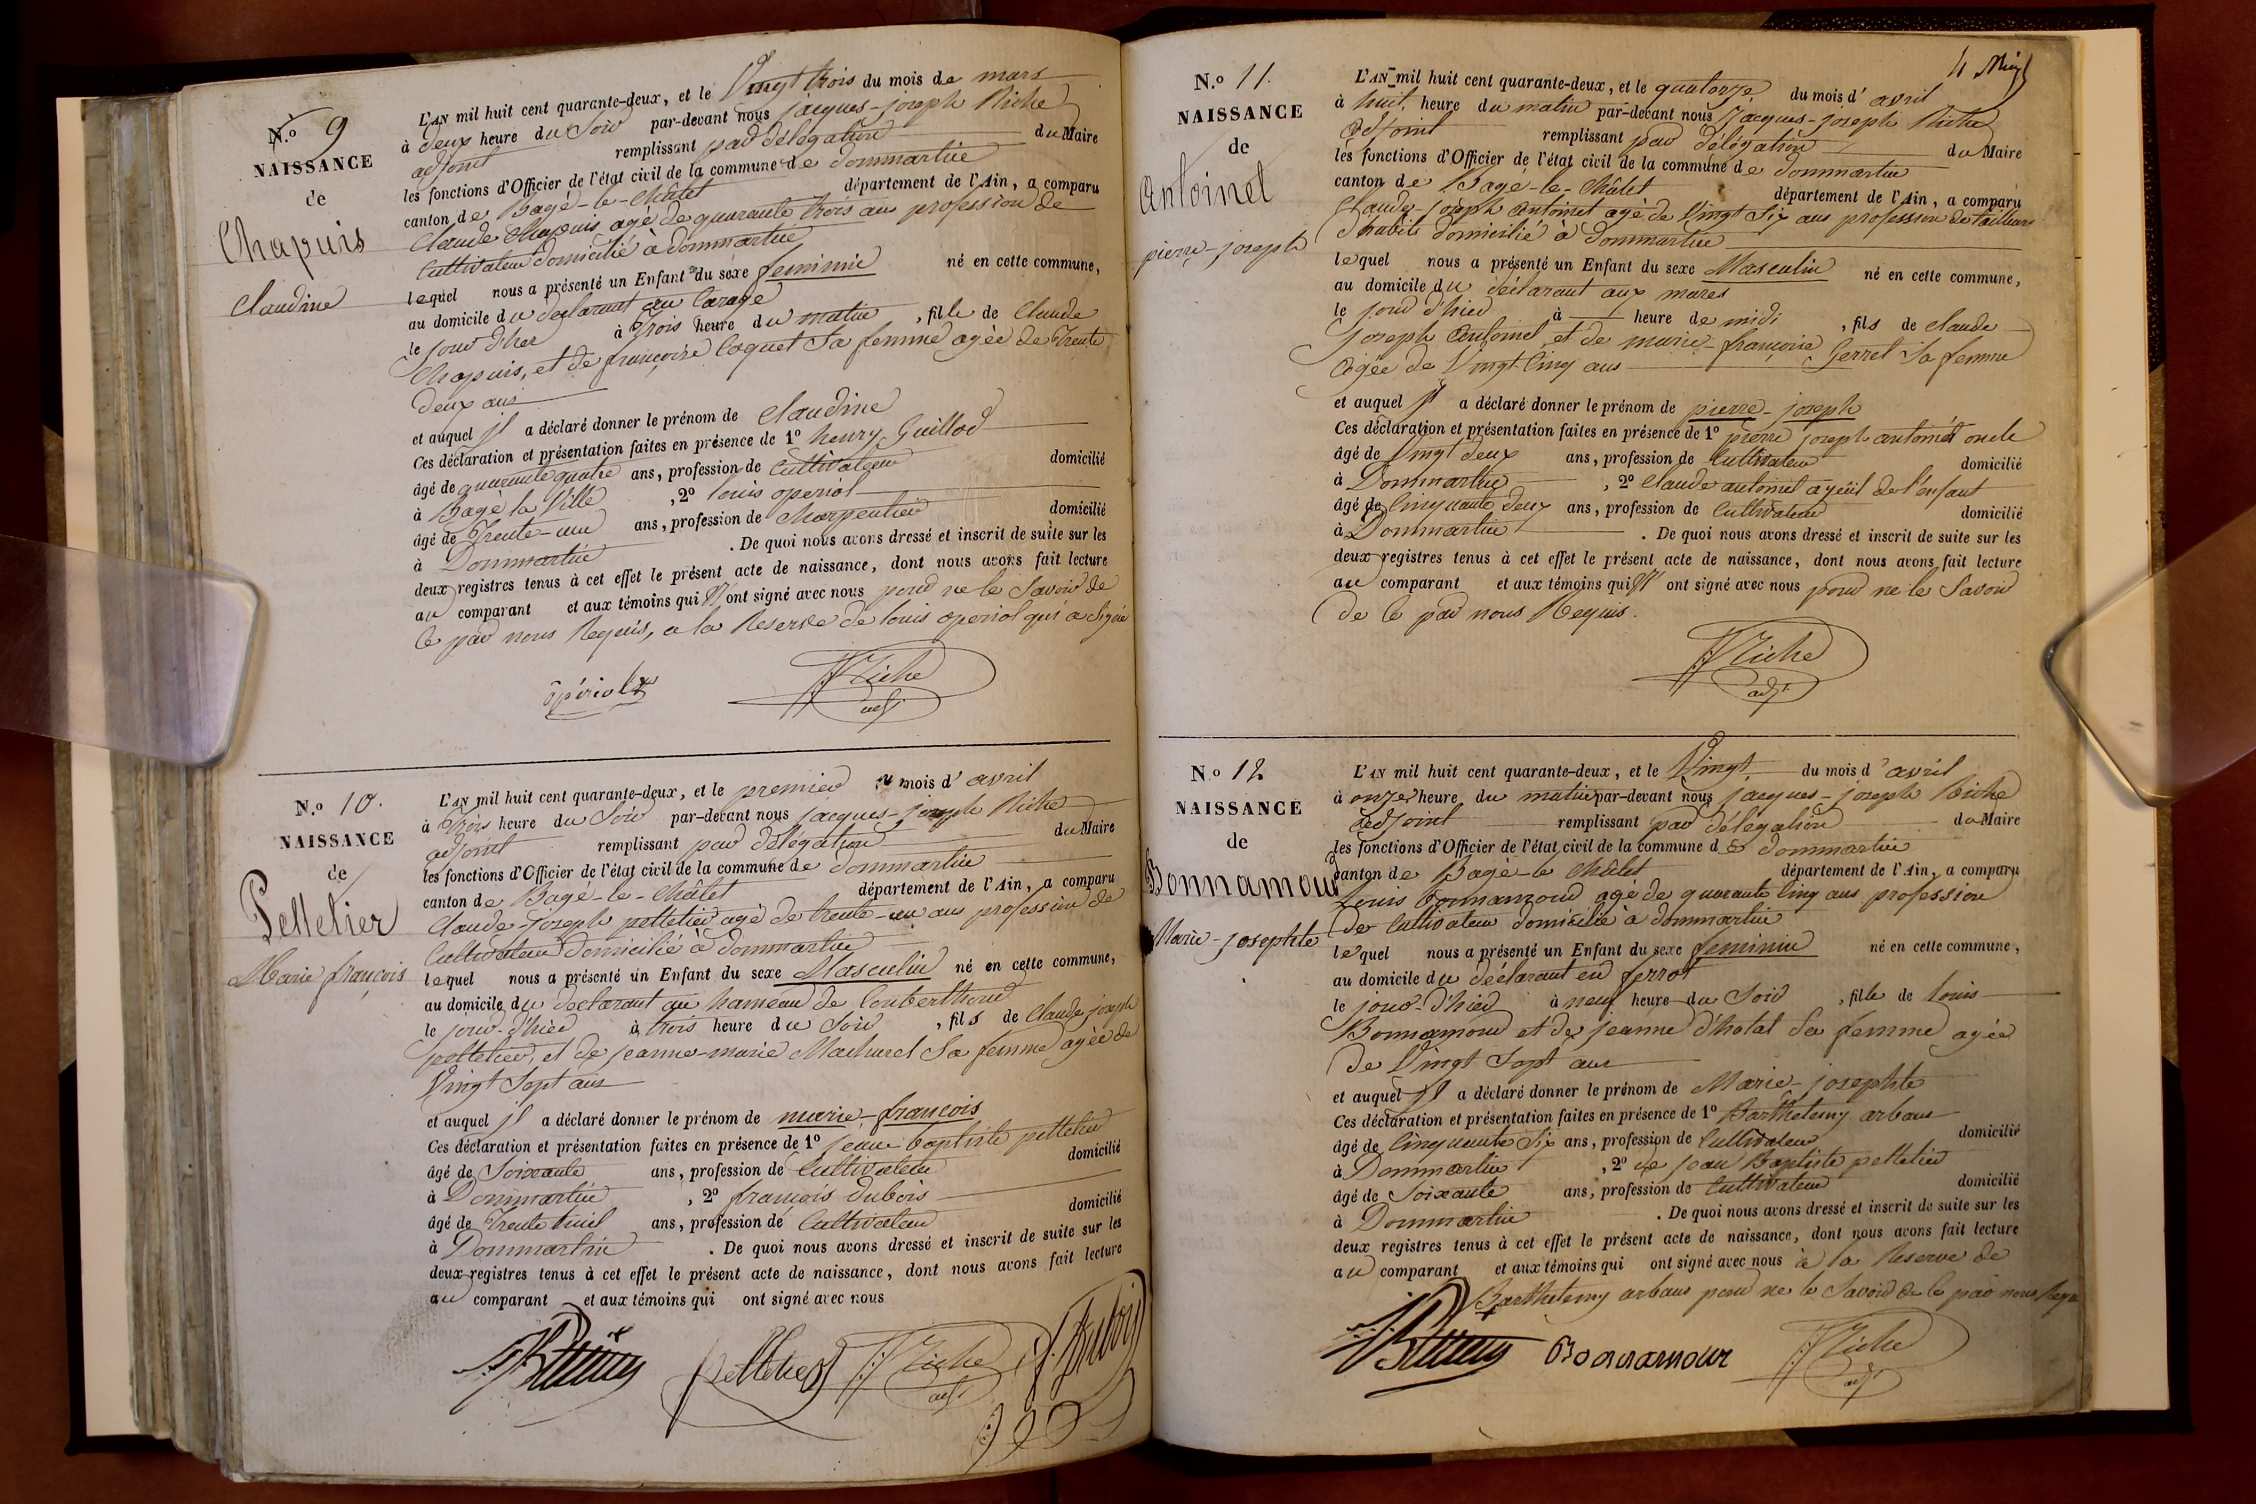 N.º 9
NAISSANCE
de
Chapuis
Claudine
L'AN mil huit cent quarante-deux, et le Vingt trois du mois de mars
à deux heure du Soir par-devant nous jacques-joseph Riche
adjoint remplissant par délégation du Maire
les fonctions d'Officier de l'état civil de la commune de dommartin
canton de Bagé-le-Châtel département de l'Ain, a comparu
Claude Chapuis agé de quarante trois ans profession de
Cultivateur domicilié à dommartin
lequel nous a présenté un Enfant du sexe feminin né en cette commune,
au domicile du déclarant au Carage
le jour d'hier à Trois heure du matin, fille de Claude
Chapuis, et de françoise Coquet Sa femme agée de Trente
deux ans
et auquel jl a déclaré donner le prénom de Claudine
Ces déclaration et présentation faites en présence de 1º henry Guillod
âgé de quarante quatre ans, profession de Cultivateur domicilié
à Bagé la Ville, 2º louis operiol
âgé de Trente-un ans, profession de Charpentier domicilié
à Dommartin. De quoi nous avons dressé et inscrit de suite sur les
deux registres tenus à cet effet le présent acte de naissance, dont nous avons fait lecture
au comparant et aux témoins qui n'ont signé avec nous pour ne le Savoir de
Ce par nous Requis, a la Reserve de louis operiol qui a Signé
opériol
JJ Riche
adj.
N.º 10.
NAISSANCE
de
Pelletier
Marie françois
L'AN mil huit cent quarante-deux, et le premier du mois d'avril
à Trois heure du Soir par-devant nous jacques-joseph Riche
adjoint remplissant par délégation du Maire
les fonctions d'Officier de l'état civil de la commune de dommartin
canton de Bagé-le-Châtel département de l'Ain, a comparu
Claude-joseph pelletier agé de trente-un ans profession de
Cultivateur domicilié à dommartin
lequel nous a présenté un Enfant du sexe Masculin né en cette commune,
au domicile du déclarant au hameau de
le jour-d'hier à trois heure du Soir, fils de Claude joseph
pelletier, et de jeanne-marie Machurel Sa femme agée de
Vingt Sept ans
et auquel jl a déclaré donner le prénom de marie-françois
Ces déclaration et présentation faites en présence de 1º jean baptiste pelletier
âgé de Soixante ans, profession de Cultivateur domicilié
à Dommartin, 2º françois dubois
âgé de Trente huit ans, profession de Cultivateur domicilié
à Dommartin. De quoi nous avons dressé et inscrit de suite sur les
deux registres tenus à cet effet le présent acte de naissance, dont nous avons fait lecture
au comparant et aux témoins qui ont signé avec nous
pelletier JJ Riche f. dubois
adj.
4 
N.º 11.
NAISSANCE
de
Antoinet
pierre-joseph
L'AN mil huit cent quarante-deux, et le quatorze du mois d'avril
à huit, heure du matin par-devant nous Jacques-joseph Riche
adjoint remplissant par délégation du Maire
les fonctions d'Officier de l'état civil de la commune de dommartin
canton de Bagé-le-Châtel département de l'Ain, a comparu
Claude-joseph Antoinet agé de Vingt Six ans profession de tailleur
d'habits domicilié à dommartin
lequel nous a présenté un Enfant du sexe Masculin né en cette commune,
au domicile du déclarant aux mares
le jour d'hier à heure de midi, fils de claude
joseph Antoinet, et de marie-françoise Gerret Sa femme
agée de Vingt-Cinq ans
et auquel jl a déclaré donner le prénom de pierre-joseph
Ces déclaration et présentation faites en présence de 1º pierre joseph antoinet oncle
âgé de Vingt deux ans, profession de Cultivateur domicilié
à Dommartin, 2º Claude antoinet ayeüil de l'enfant
âgé de Cinquante deux ans, profession de Cultivateur domicilié
à Dommartin. De quoi nous avons dressé et inscrit de suite sur les
deux registres tenus à cet effet le présent acte de naissance, dont nous avons fait lecture
au comparant et aux témoins qui n' ont signé avec nous pour ne le Savoir
de Ce par nous Requis.
JJ Riche
adj.
N.º 12
NAISSANCE
de
Bonnamour
Marie-josephte
L'AN mil huit cent quarante-deux, et le Vingt du mois d'avril
à onze heure du matin par-devant nous jacques-joseph Riche
adjoint remplissant par délégation du Maire
les fonctions d'Officier de l'état civil de la commune de dommartin
canton de Bagé-le Châtel département de l'Ain, a comparu
Louis Bonnamour agé de quarante Cinq ans profession
de Cultivateur domicilié à dommartin
lequel nous a présenté un Enfant du sexe feminin né en cette commune,
au domicile du déclarant en ferrot
le jour-d'hier à neuf heure du Soir, fille de louis
Bonnamour et de jeanne d'hotal Sa femme agée
de Vingt Sept ans
et auquel jl a déclaré donner le prénom de Marie-josephte
Ces déclaration et présentation faites en présence de 1º Barthelemy arbans
âgé de Cinquante Six ans, profession de Cultivateur domicilié
à Dommartin, 2º de jean Baptiste pelletier
âgé de Soixante ans, profession de Cultivateur domicilié
à Dommartin. De quoi nous avons dressé et inscrit de suite sur les
deux registres tenus à cet effet le présent acte de naissance, dont nous avons fait lecture
au comparant et aux témoins qui ont signé avec nous à la Reserve de
Barthelemy arbans pour ne le Savoir de Ce par nous Requis
Bonnamour JJ Riche
adj.